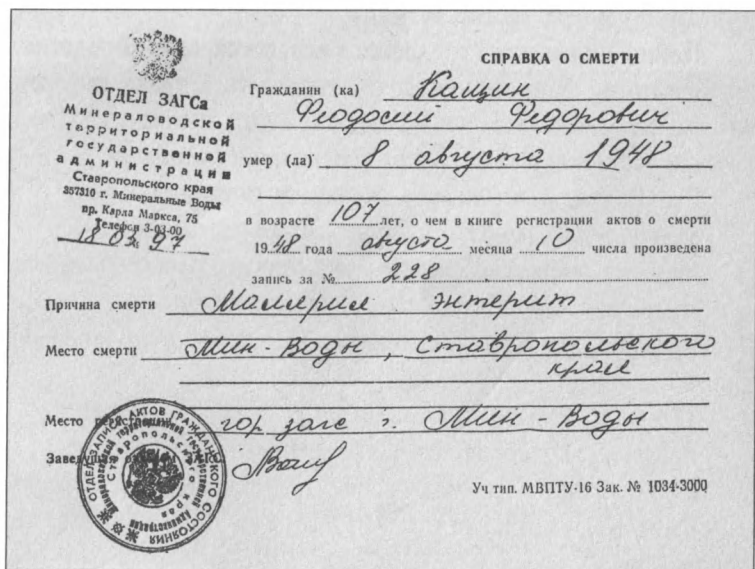 СПРАВКА О СМЕРТИ
ОТДЕЛ ЗАГСа
Минераловодской
территориальной
государственной
администрации
Ставропольского края
357310 г. Минеральные Воды
пр. Карла Маркса, 75
Телефон 3-03-00
18 02 97
Гражданин (ка) Кащин
Феодосий Федорович
умер (ла) 8 августа 1948
в возрасте 107 лет, о чем в книге регистрации актов о смерти
19 48 года августа месяца 10 числа произведена
запись за № 228
Причина смерти Малярия энтерит
Место смерти Мин-Воды, Ставропольского
края
Место гор загс г. Мин-Воды
Уч тип. МВПТУ-16 Зак. № 1034-3000
ОТДЕЛ ЗАПИСИ АКТОВ ГРАЖДАНСКОГО СОСТОЯНИЯ
Ставропольского края